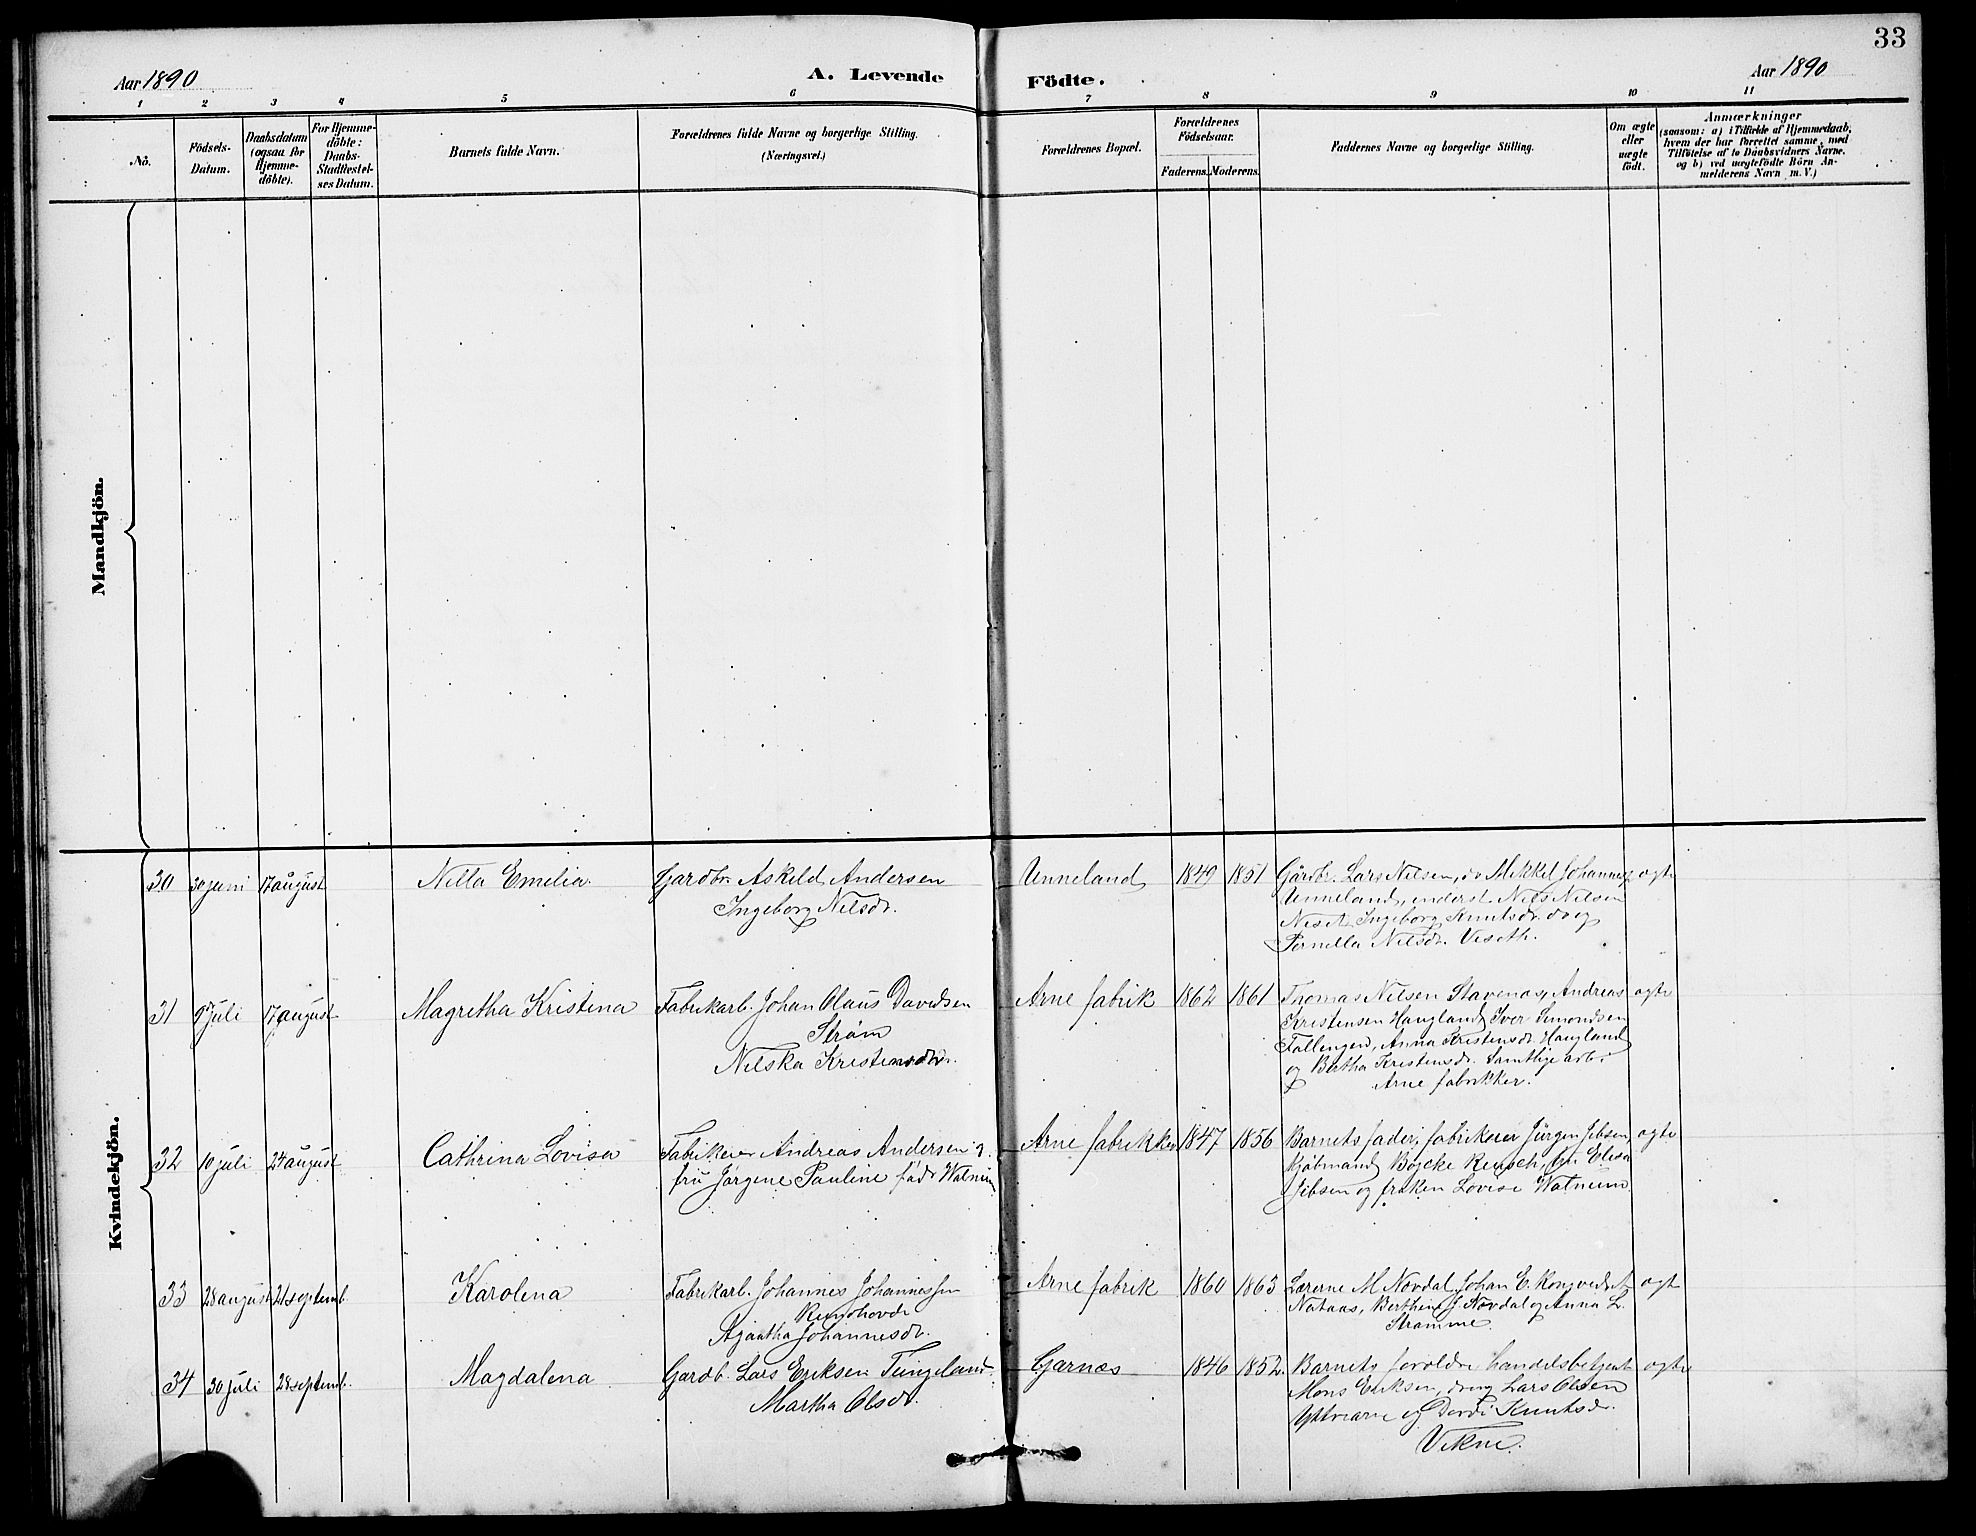 33
Aar 1890 A. Levende Födte. Aar 1890
1 2 3 4 5 6 7 8 9 10 11
No.
Födsels-
Datum.
Daabsdatum
(ogsaa for
Hjemme-
döbte).
For Hjemme-
döbte:
Daabs-
Stadfestel-
ses Datum.
Barnets fulde Navn.
Forældrenes fulde Navne og borgerlige Stilling.
(Næringsvei.)
Forældrenes Bopæl.
Forældrenes
Födselsaar.
Faderens. Moderens.
Faddernes Navne og borgerlige Stilling.
Om ægte
eller
uægte
födt.
Anmærkninger
(saasom: a) i Tilfælde af Hjemmedaab,
hvem der har forrettet samme, med
Tilföielse af to Daabsvidners Navne.
og b) ved uægtefödte Börn An-
melderens Navn m. V.)
Mandkjön.
Kvindekjön.
30 30 juni 17 august Nilla Emelia. Gardbr. Askild Andersen
Ingeborg Nilsdr.
Unneland 1849 1851 Gårdbr. Lars Nilsen, do Mikkel Johannes
Unneland, Nils Nilsen
Neset Ingeborg Knutsdr. do og
Pernilla Nilsdr. Viseth.
ægte
31 9 juli 17 august Magretha Kristina Fabrikarb. Johan Olaus Davidsen
Strøm
Nilska Kristensdtr.
Arne fabrik 1862 1861 Thomas Nilsen Stavenas, Andreas
Kristensen Haugland, Iver Simondsen
Anna Kristensdr. Haugland
og Bertha Kristensdr. samtlige arb.
Arne fabrikker.
ægte
32 10 juli 24 august Cathrina Lovisa Fabrikeier Andreas Andersen og
fru Jørgene Pauline fød Watnum
Arne fabrikker 1847 1856 Barnets fader, fabrikeier Jürgen Jebsen,
kjøbmand Böjcke Reusch, fru Elisa
Jebsen og frøken Lovise Watnum.
ægte
33 28 august 21 septemb. Karolena Fabrikarb. Johannes Johannessen
Agaatha Johannesdr.
Arne fabrik 1860 1863 Lærerne M Novdal, Johan E.
Nataas, Berthine J. Novdal og Anna L.
Stramme.
ægt
34 30 juli 28 septemb. Magdalena Gardb. Lars Eriksen Tungeland
Martha Olsdr.
Garnæs 1846 1852. Barnets foreldre handelsbetjent
Mons Eriksen, dreng Lars Olsen
Ytrearne og Dordi Knutsdr.
Vikne.
ægte